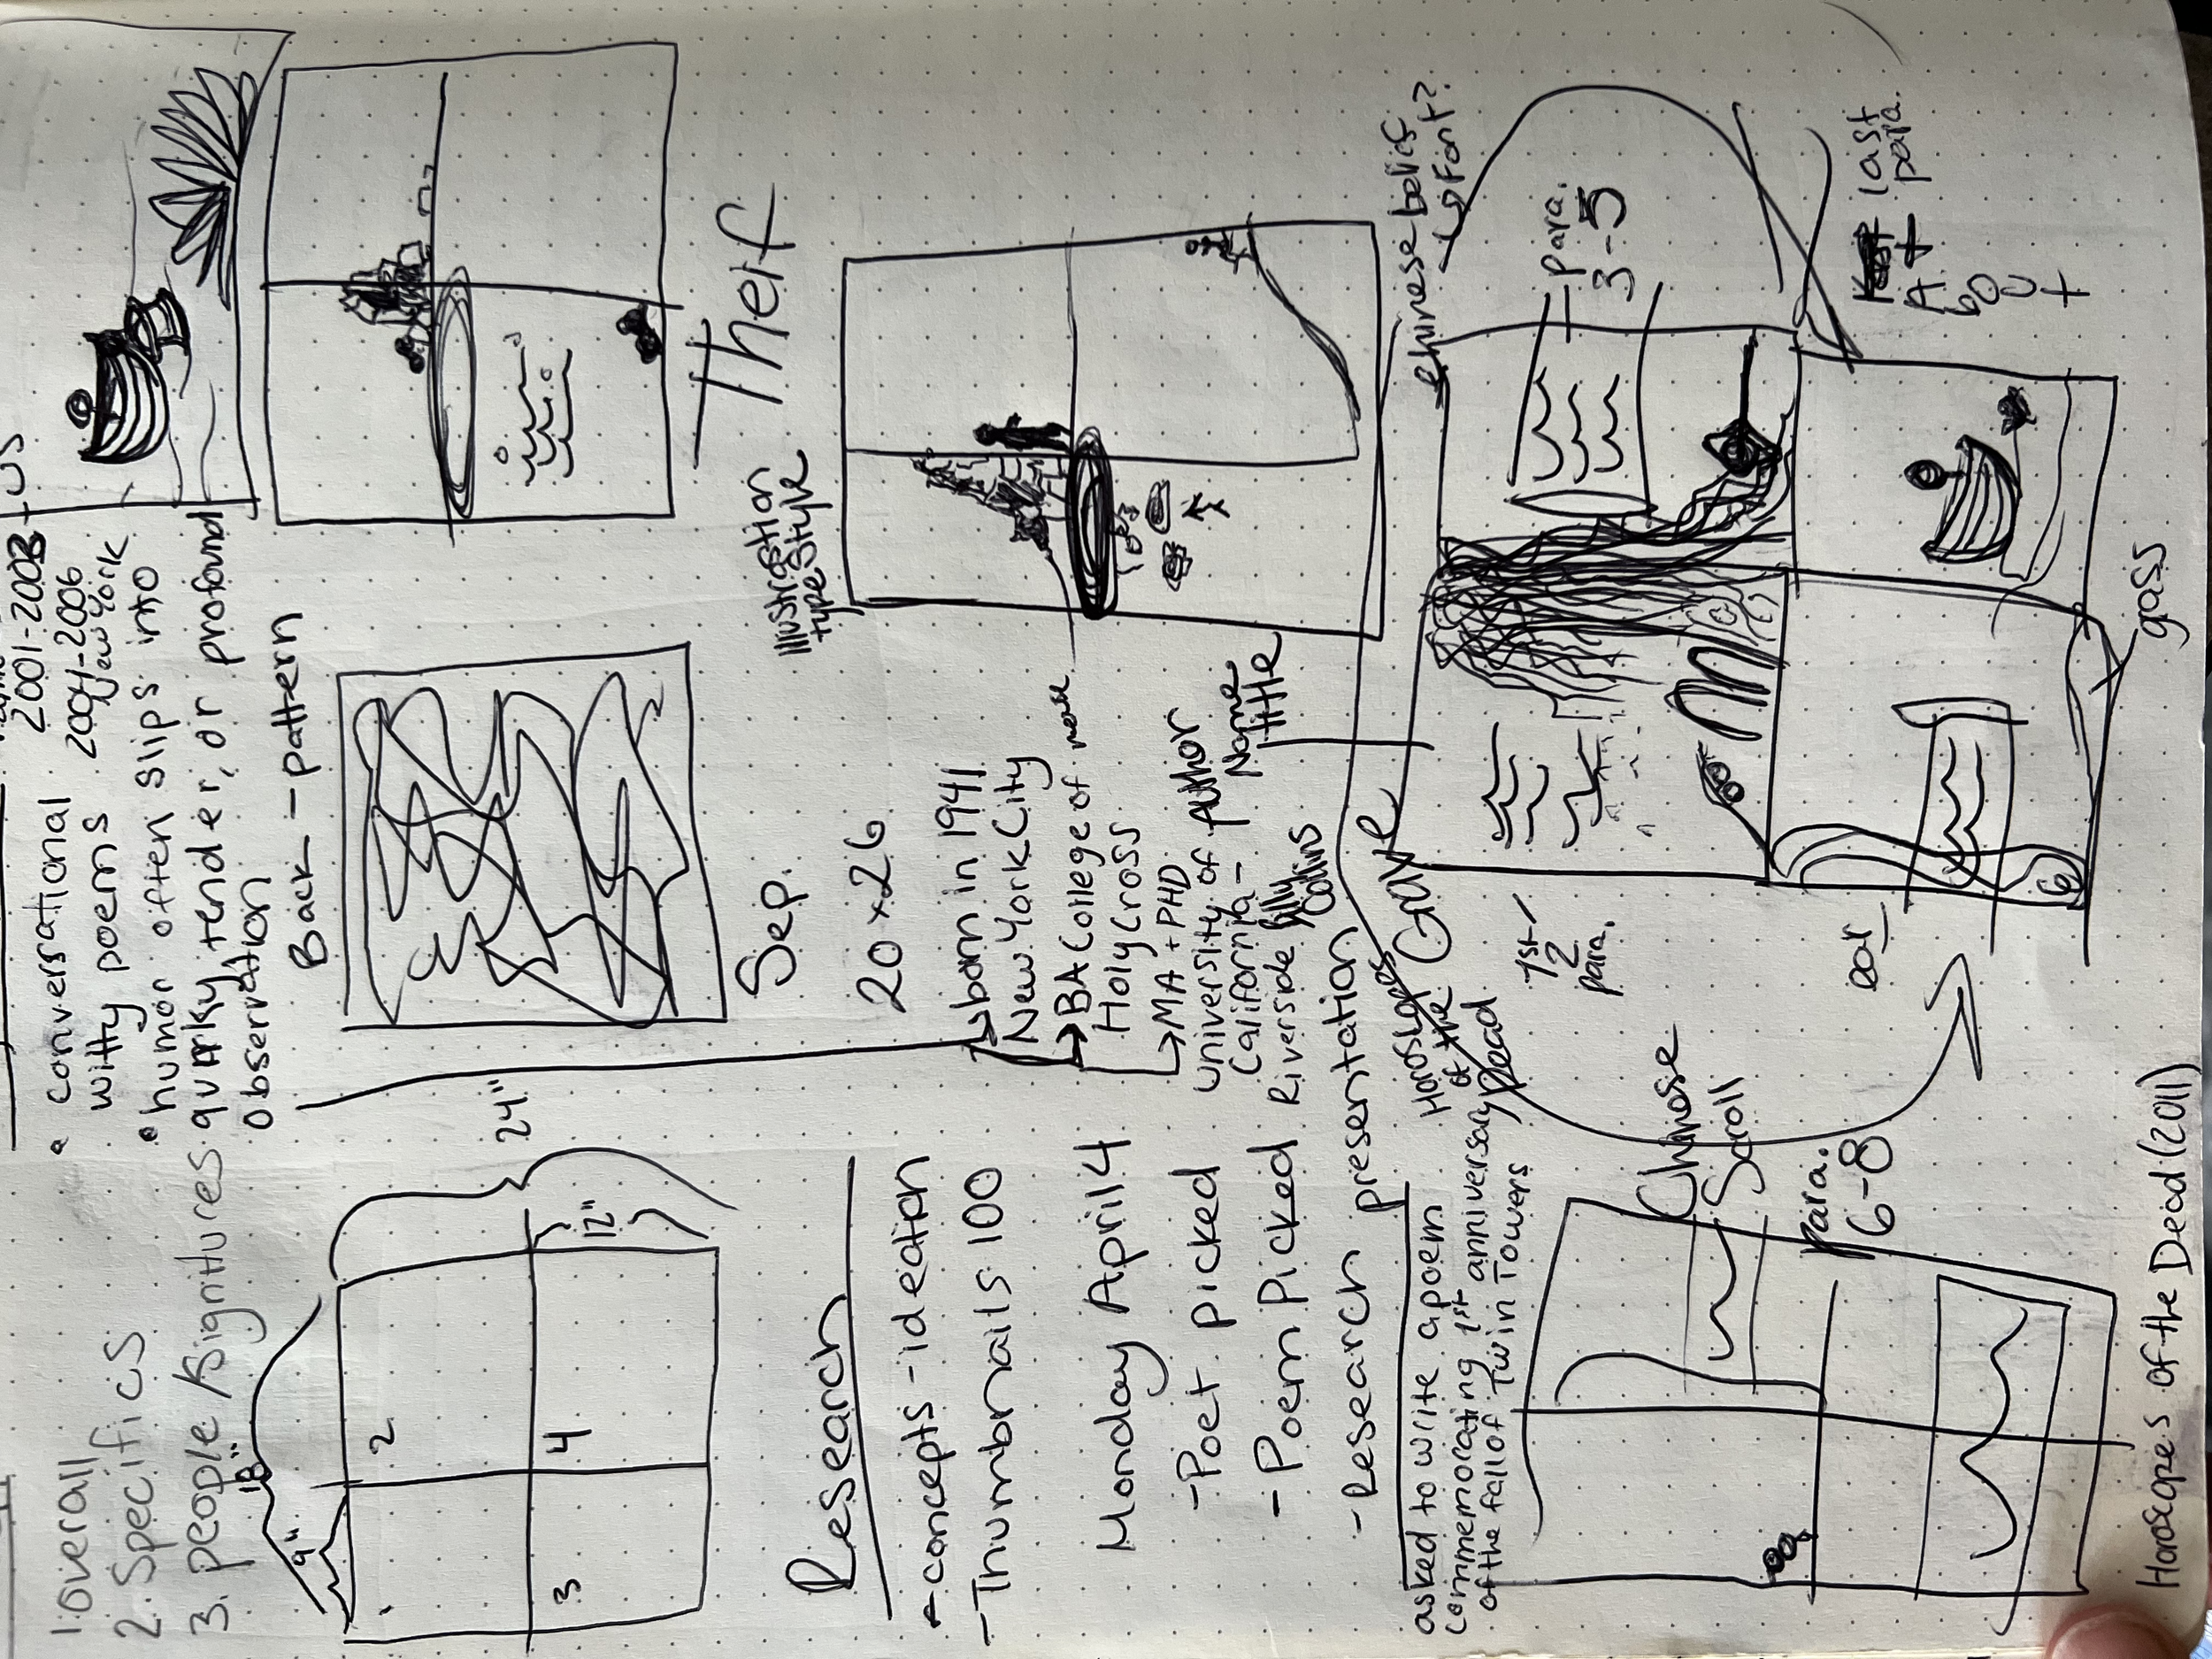 1. overall
2. Specifics
3. people/signitures
18"
9"
24"
12"
2
3
4
2001-2003 - US
2004-2006
New York
• conversational
witty poems
• humor often slips into
quirky, tender, or profound
observation
Back - pattern
Sep.
20 x 26
Theif
Illustration
type style
Research
- concepts - ideation
- Thumbnails 100
Monday April 4
- Poet picked
- Poem Picked
- Research presentation
born in 1941
New York City
BA College of
Holy Cross
MA + PHD
University of
California -
Riverside
Author
Name
title
Billy
Collins
asked to write a poem
commemorating 1st anniversary
of the fall of Twin Towers
Horoscopes
of the
Dead
Grave
Chinese beliefs
Font?
1st
2
para.
Para.
3-5
Chinese
Scroll
Para.
6-8
ear
last
para.
gass
Horoscopes of the Dead (2011)